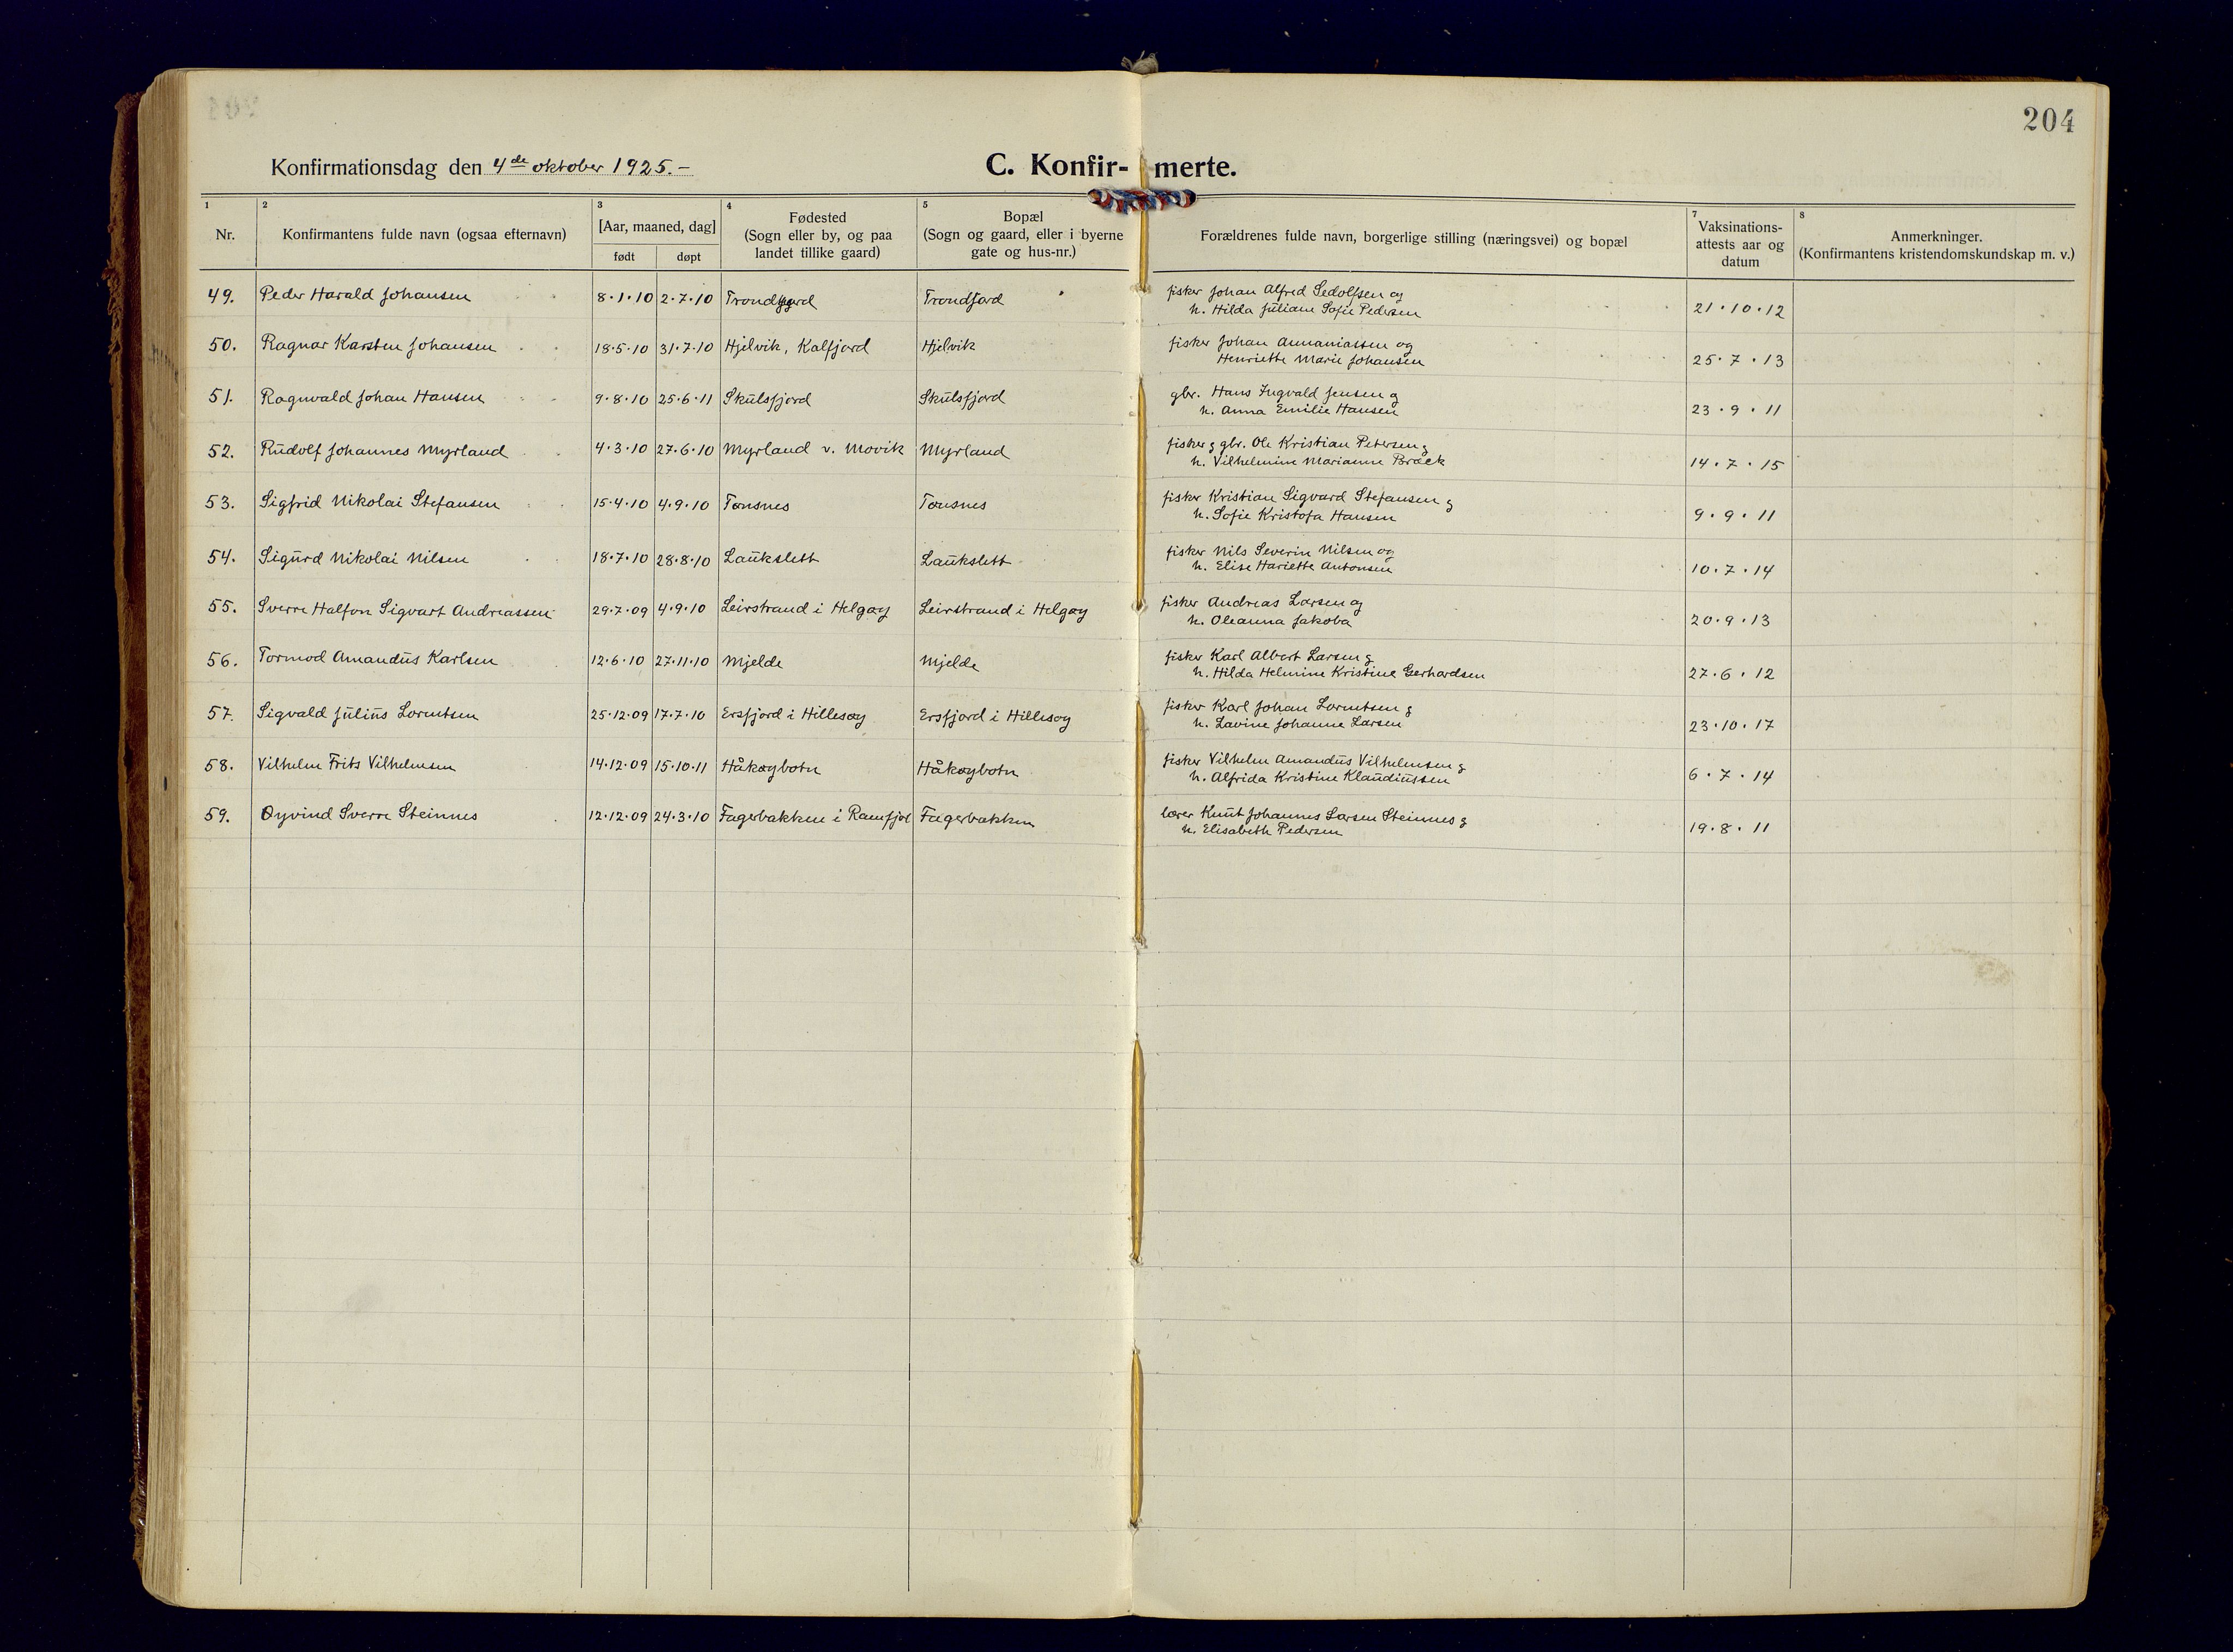 204
Konfirmationsdag den 4de oktober 1925.-
C. Konfir- merte.
1 2 3 4 5 7 8
Nr. Konfirmantens fulde navn (ogsaa efternavn) [Aar, maaned, dag] født døpt Fødested (Sogn eller by, og paa landet tillike gaard) Bopæl (Sogn og gaard, eller i byerne gate og hus-nr.) Forældrenes fulde navn, borgerlige stilling (næringsvei) og bopæl Vaksinations-attests aar og datum Anmerkninger. (Konfirmantens kristendomskundskap m. v.)
49. Peder Harald Johansen 8.1.10 2.7.10 Trondjord Trondjord fisker Johan Alfred Sedolfsen og
h. Hilda Juliane Sofie Pedersen 21.10.12
50. Ragnar Karsten Johansen 18.5.10 31.7.10 Hjelvik, Kalfjord Hjelvik fisker Johan Annaniassen og
Henriette Marie Johansen 25.7.13
51. Ragnvald Johan Hansen 9.8.10 25.6.11 Skulsfjord Skulsfjord gbr. Hans Ingvald Jensen og
h. Anna Emilie Hansen 23.9.11
52. Rudolf Johannes Myrland 4.3.10 27.6.10 Myrland v. Movik Myrland fisker g gbr. Ole Kristian Petersen g
h. Vilhelmine Marianne Bræck 14.7.15
53. Sigfrid Nikolai Stefansen 15.4.10 4.9.10 Tønsnes Tønsnes fisker Kristian Sigvard Stefansen g
h. Sofie Kristofa Hansen 9.9.11
54. Sigurd Nikolai Nilsen 18.7.10 28.8.10 Laukslett Laukslett fisker Nils Severin Nilsen og
h. Elise Hariette Antonsen 10.7.14
55. Sverre Halfon Sigvart Andreassen 29.7.09 4.9.10 Leirstrand i Helgøy Leirstrand i Helgøy fisker Andreas Larsen og
h. Oleanna Jakoba 20.9.13
56. Tormod Amandus Karlsen 12.6.10 27.11.10 Mjelde Mjelde fisker Karl Albert Larsen g
h. Hilda Helmine Kristine Gerhardsen 27.6.12
57. Sigvald Julius Lorentsen 25.12.09 17.7.10 Ersfjord i Hillesøy Ersfjord i Hillesøy fisker Karl Johan Lorentsen g
h. Lavine Johanne Larsen 23.10.17
58. Vilhelm Frits Vilhelmsen 14.12.09 15.10.11 Håkøybotn Håkøybotn fisker Vilhelm Amandus Vilhelmsen g
h. Alfrida Kristine Klaudiussen 6.7.14
59. Øyvind Sverre Steinnes 12.12.09 24.3.10 Fagerbakken i Ramfjord Fagerbakken lærer Knut Johannes Larsen Steinnes g
h. Elisabeth Pedersen 19.8.11